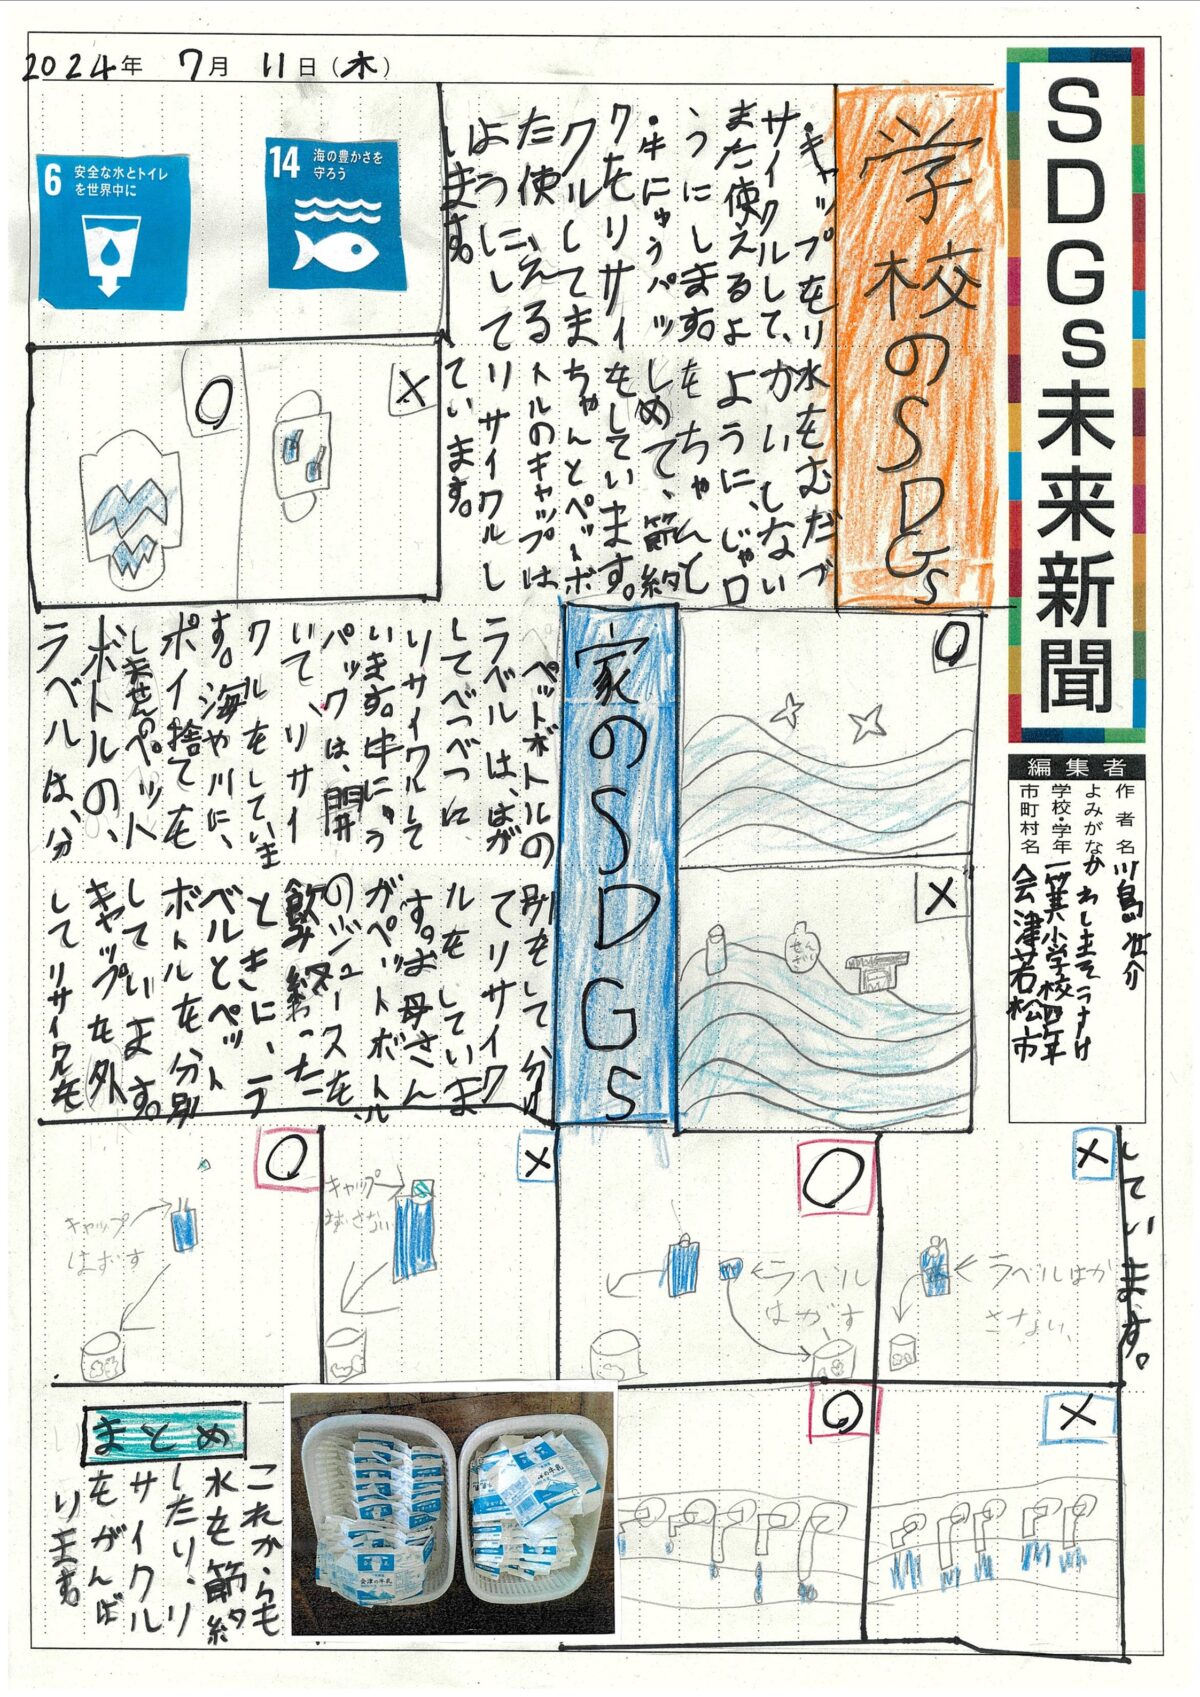 2024年 7月 11日(木)
SDGs未来新聞
編集者
作者名 川島
よみがな かわしまそうすけ
学校・学年 一箕小学校四年
市町村名 会津若松市
学校のSDGs
・キャップをリ
サイクルして、
また使えるよ
うにします。
・牛にゅうパッ
クをリサイ
クルしてま
た使える
ようにして
います。
水をむだづ
かいしない
ように、じゃ口
をちゃんと
しめて、節約
をしています。
ちゃんとペットボ
トルのキャップは
リサイクルし
ています。
6 安全な水とトイレ
を世界中に
14 海の豊かさを
守ろう
○
×
家のSDGs
ペットボトルの
ラベルは、はが
してべつべつに
リサイクルして
います。牛にゅう
パックは、開
いて、リサイ
クルをしていま
す。海や川に、
ポイ捨てを
しません。ペット
ボトルの、
ラベルは、分
別をして分け
てリサイク
ルをしていま
す。お母さん
がペットボトル
のジュースを、
飲み終わった
ときに、ラ
ベルとペット
ボトルを分別
しています。
キャップを外
してリサイクルを
しています。
○
×
せんざい
×
ラベルはが
さない
○
ラベル
はがす
×
キャップ
はずさない
○
キャップ
はずす
×
○
会津の牛乳
まとめ
これからも
水を節約
したり、リ
サイクル
をがんば
ります。